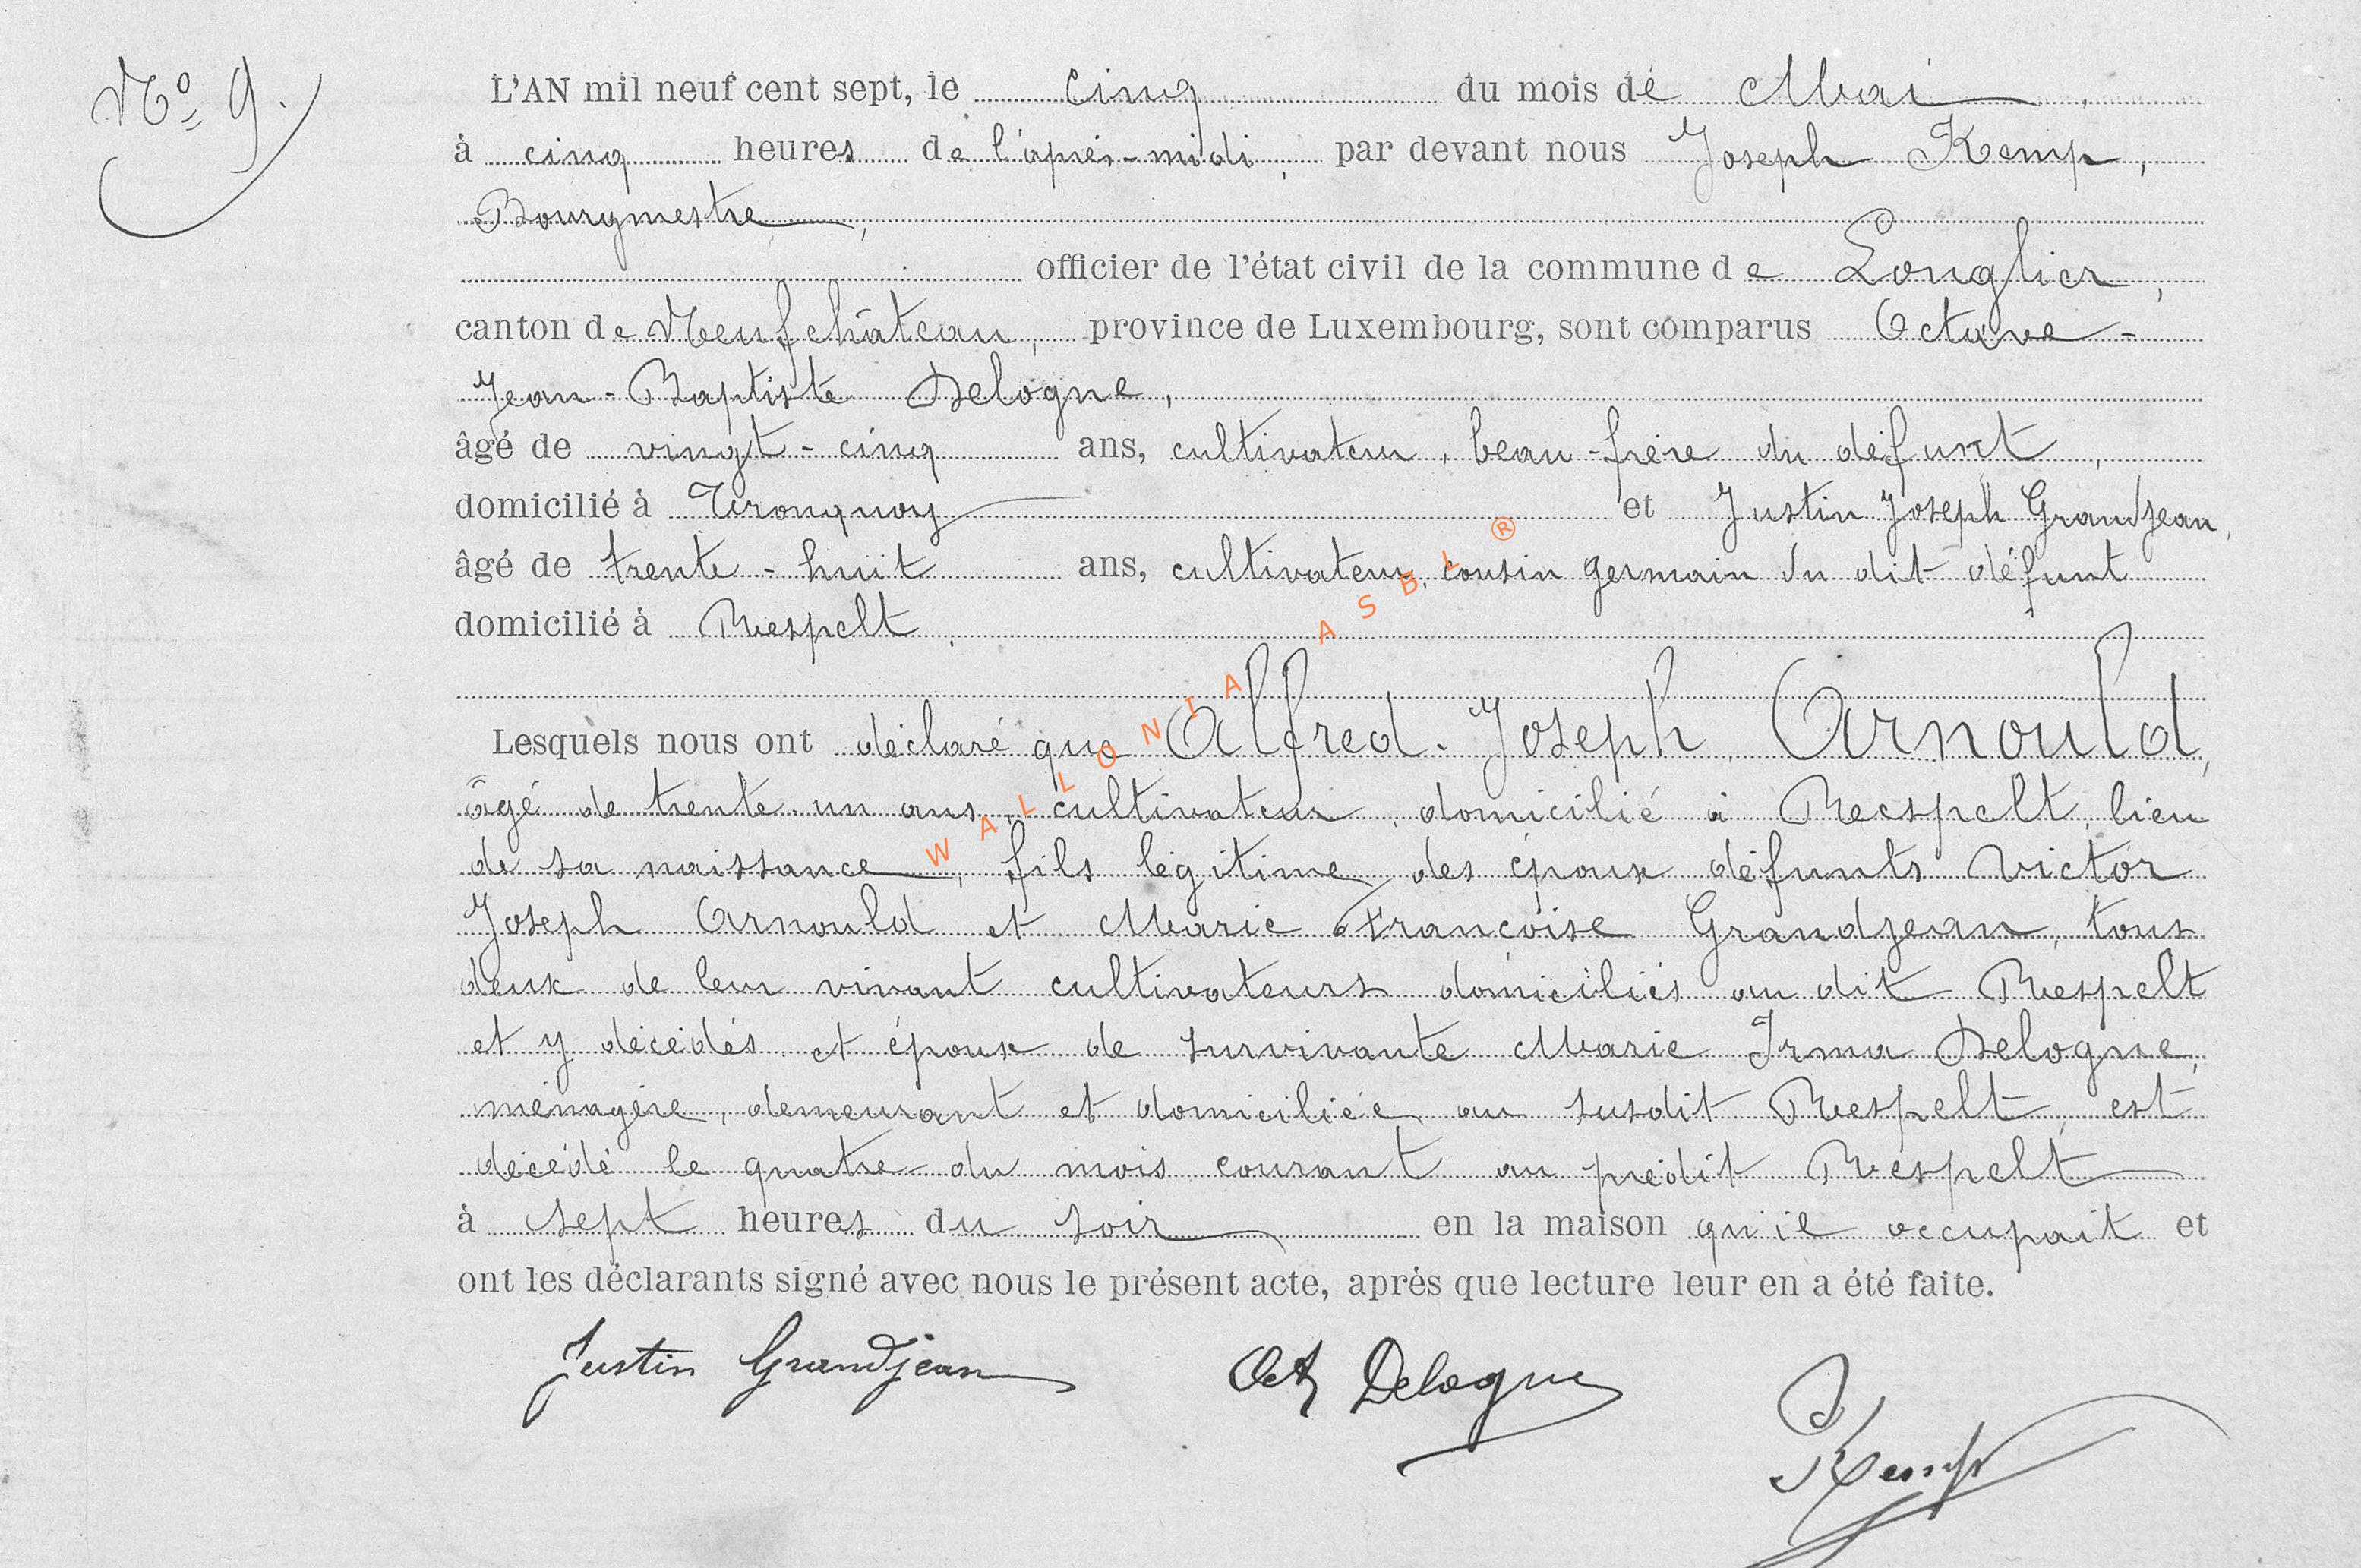 N° 9.
L'AN mil neuf cent sept, le cinq du mois de Mai,
à cinq heures de l'après-midi, par devant nous Joseph Kemp,
Bourgmestre,
officier de l'état civil de la commune de Longlier,
canton de Neufchâteau, province de Luxembourg, sont comparus Octave-
Jean-Baptiste Delogne,
âgé de vingt-cinq ans, cultivateur, beau-frère du défunt,
domicilié à Tronquoy et Justin Joseph Grandjean,
âgé de trente-huit ans, cultivateur, cousin germain du dit défunt
domicilié à Respelt,
Lesquels nous ont déclaré que Alfred-Joseph Arnould,
âgé de trente-un ans, cultivateur, domicilié à Respelt, lieu
de sa naissance, fils légitime des époux défunts Victor
Joseph Arnould et Marie Françoise Grandjean, tous
deux de leur vivant cultivateurs domiciliés au dit Respelt
et y décédés et époux de survivante Marie Irma Delogne,
ménagère, demeurant et domiciliée au susdit Respelt, est
décédé le quatre du mois courant au prédit Respelt
à sept heures du soir en la maison qu'il occupait et
ont les déclarants signé avec nous le présent acte, après que lecture leur en a été faite.
Justin Grandjean Oct Delogne
J Kemp
WALLONIA ASBL ®